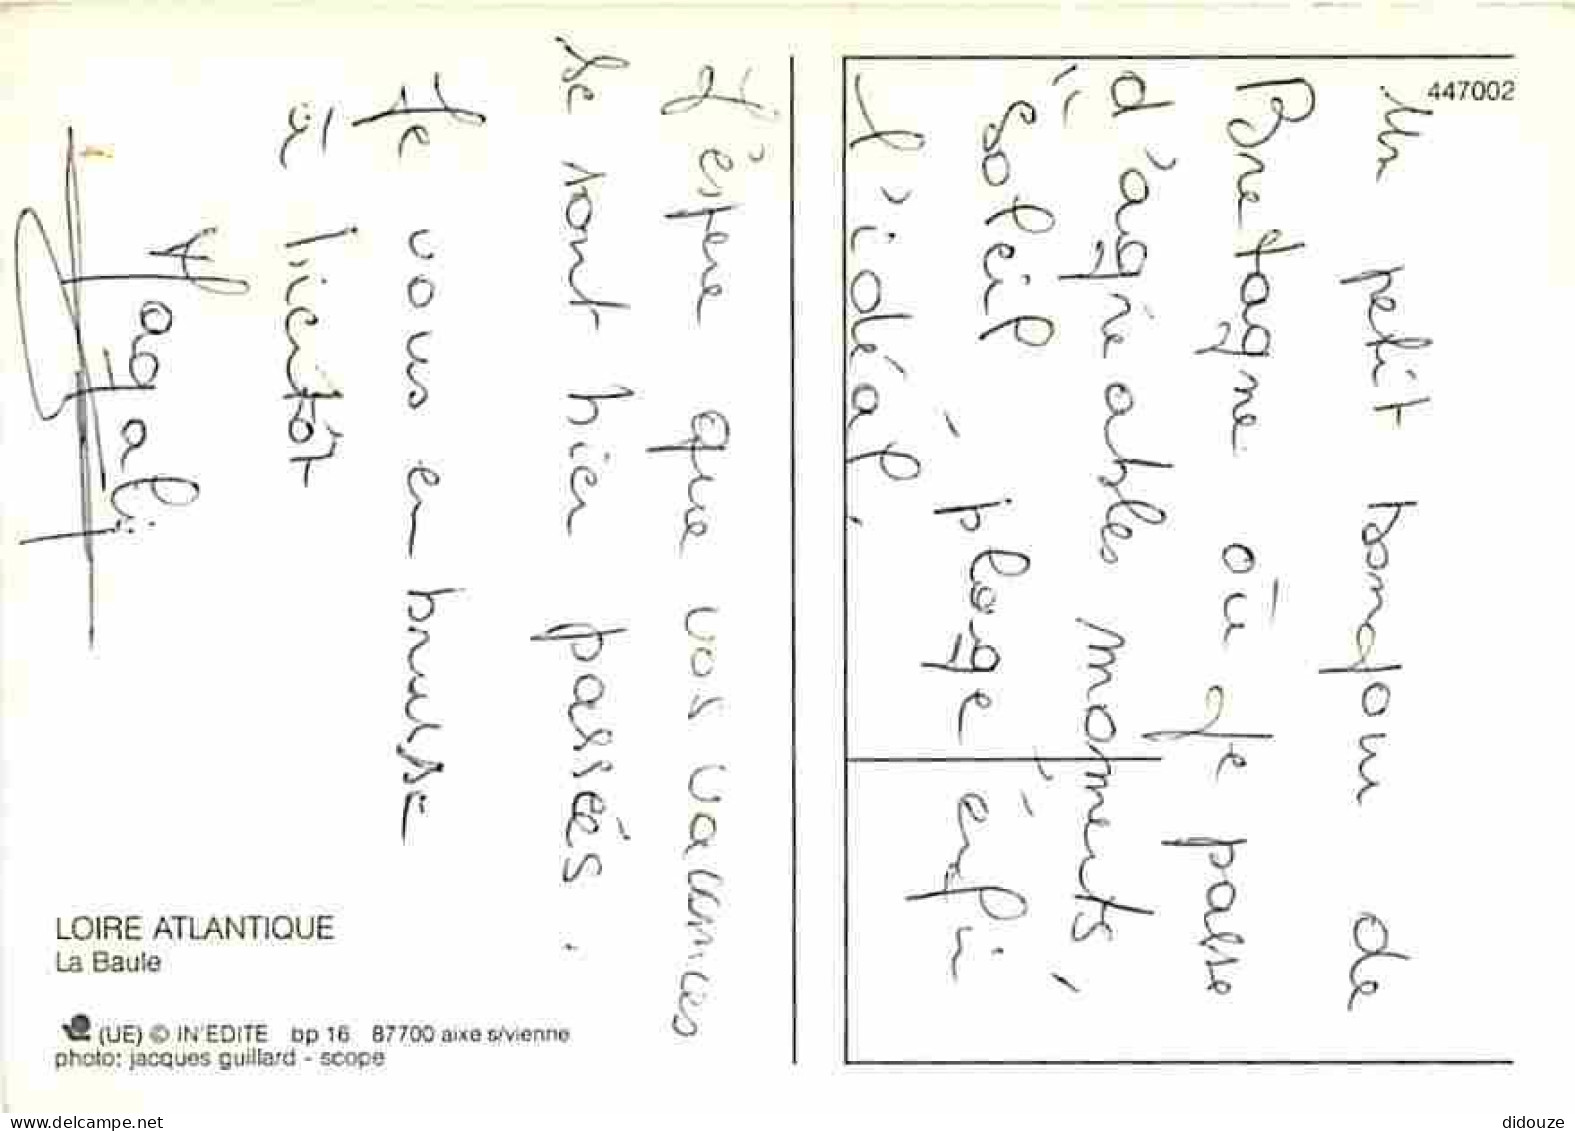 447002
Un petit bonjour de
Bretagne où je passe
d'agréables moments,
" soleil, plage, enfin
l'idéal.
J'éspère que vos vacances
se sont bien passées.
Je vous embrasse
à bientôt
Magali
LOIRE ATLANTIQUE
La Baule
(UE) © IN'EDITE bp 16 87700 aixe s/vienne
photo: jacques guillard - scope
delcampe.net
didouze